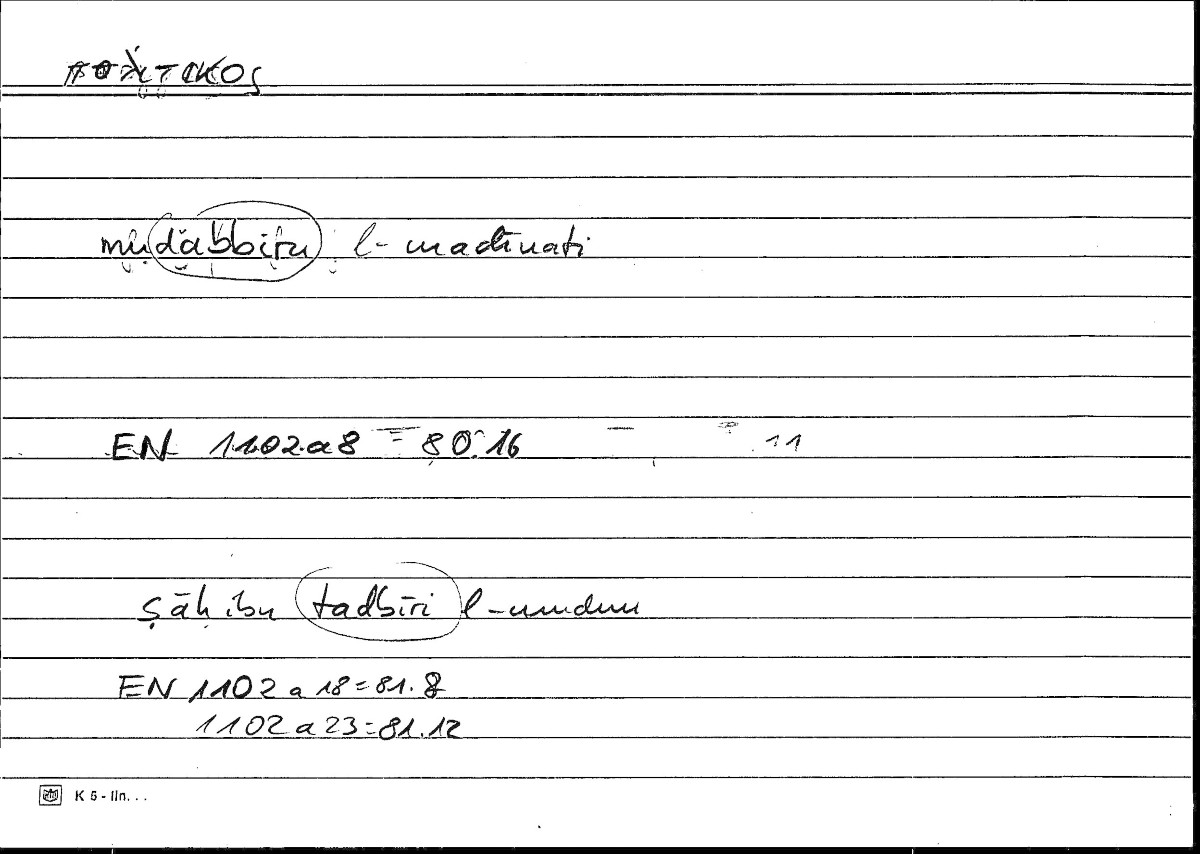 πολιτικος
mudabbiru l-madīnati
EN 1102a8 = 80.16
11
ṣāḥibu tadbīri l-mudun
EN 1102 a 18 = 81.8
1102 a 23 = 81.12
K 5 - lin. . .